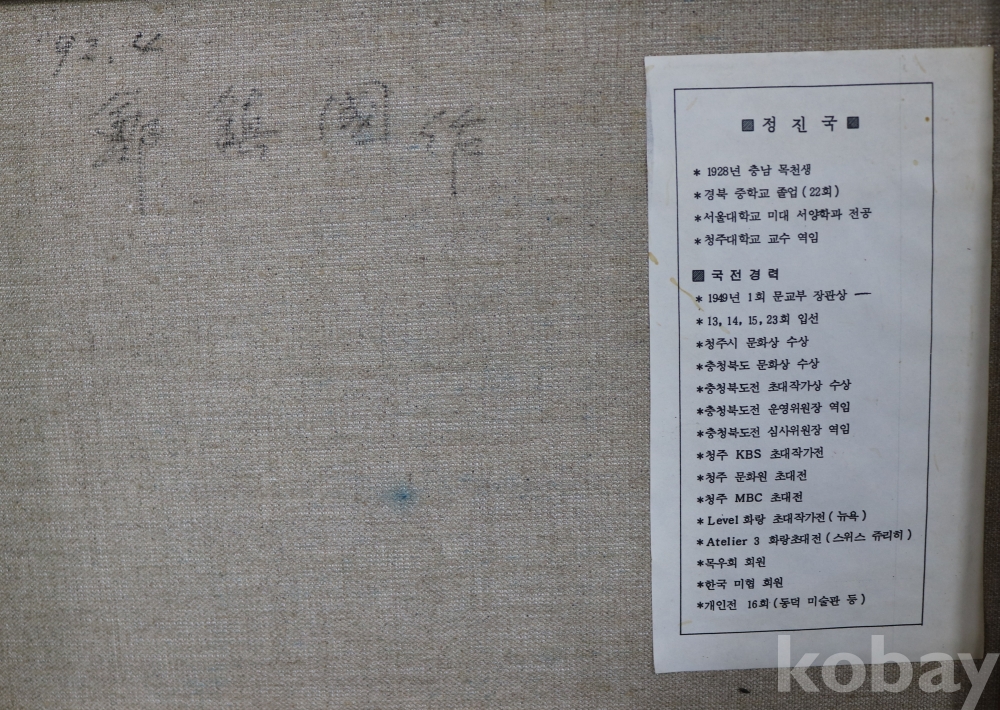 92.4
鄭鎭國作
▨ 정진국 ▨
* 1928년 충남 목천생
* 경북 중학교 졸업 (22회)
* 서울대학교 미대 서양학과 전공
* 청주대학교 교수 역임
▨ 국전경력
* 1949년 1회 문교부 장관상 —
* 13, 14, 15, 23회 입선
* 청주시 문화상 수상
* 충청북도 문화상 수상
* 충청북도전 초대작가상 수상
* 충청북도전 운영위원장 역임
* 충청북도전 심사위원장 역임
* 청주 KBS 초대작가전
* 청주 문화원 초대전
* 청주 MBC 초대전
* Level 화랑 초대작가전 ( 뉴욕 )
* Atelier 3 화랑초대전 ( 스위스 쥬리히 )
* 목우회 회원
* 한국 미협 회원
* 개인전 16회 (동덕 미술관 등)
kobay